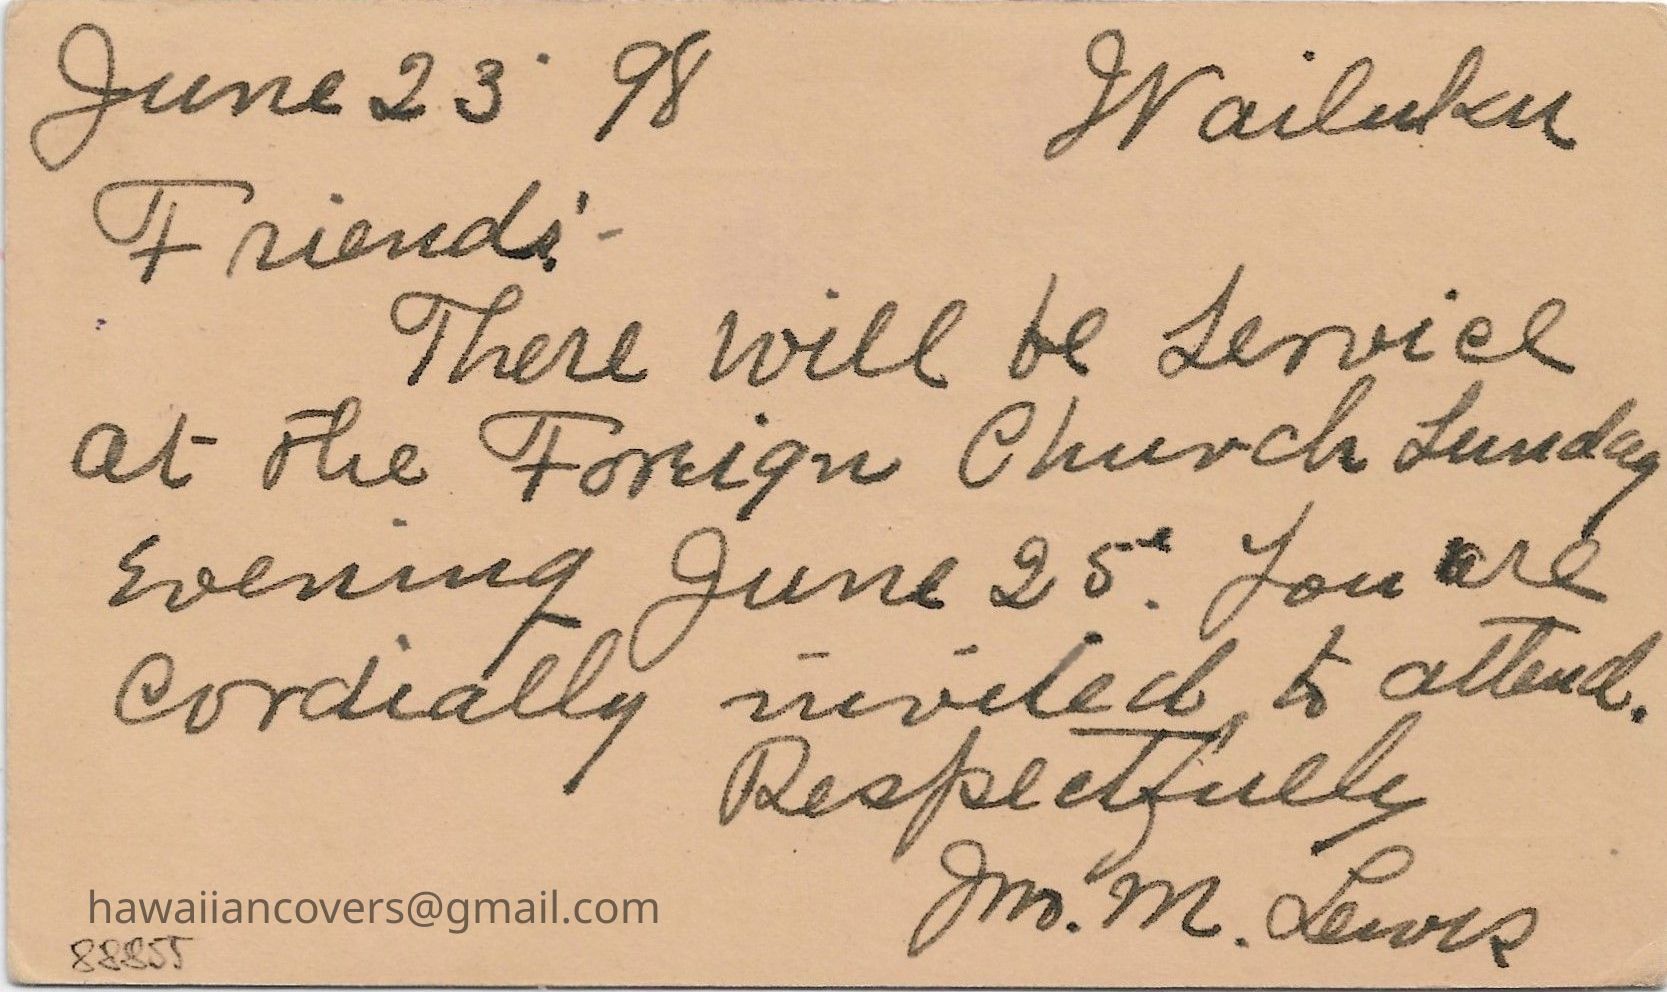 June 23 98 Wailuku
Friends:-
There will be Service
at the Foreign Church Sunday
Evening June 25. You are
Cordially invited, to attend.
Respectfully
Jno. M. Lewis
hawaiiancovers@gmail.com
88855